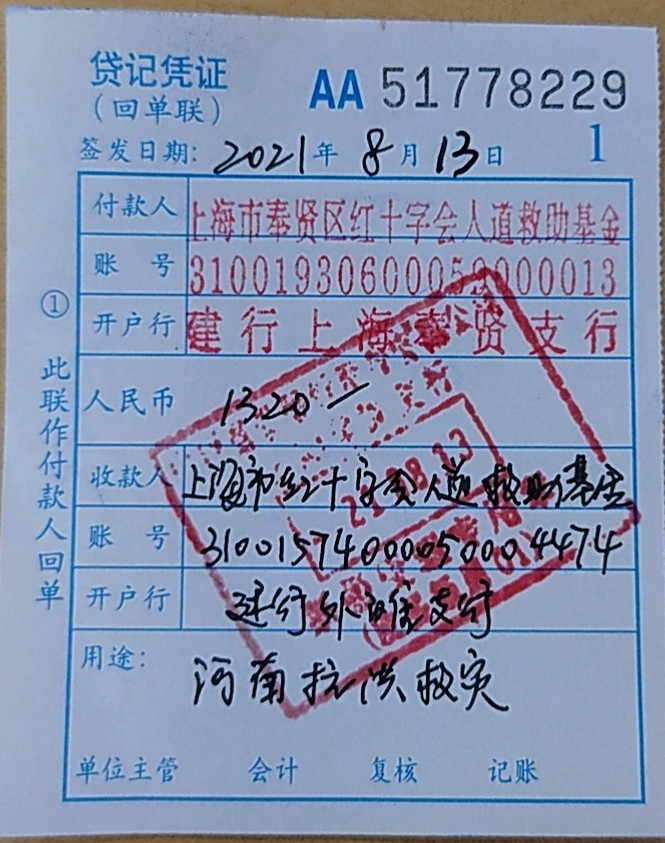 贷记凭证
（回单联）
AA 51778229
签发日期：2021年 8月 13日
1
付款人 上海市奉贤区红十字会人道救助基金
账 号 31001930600050000013
开户行 建行上海奉贤支行
人民币 1320一
收款人 上海市红十字会人道救助基金
账 号 31001574000050004474
开户行 建行外滩支行
用途：
河南抗洪救灾
单位主管 会计 复核 记账
① 此联作付款人回单